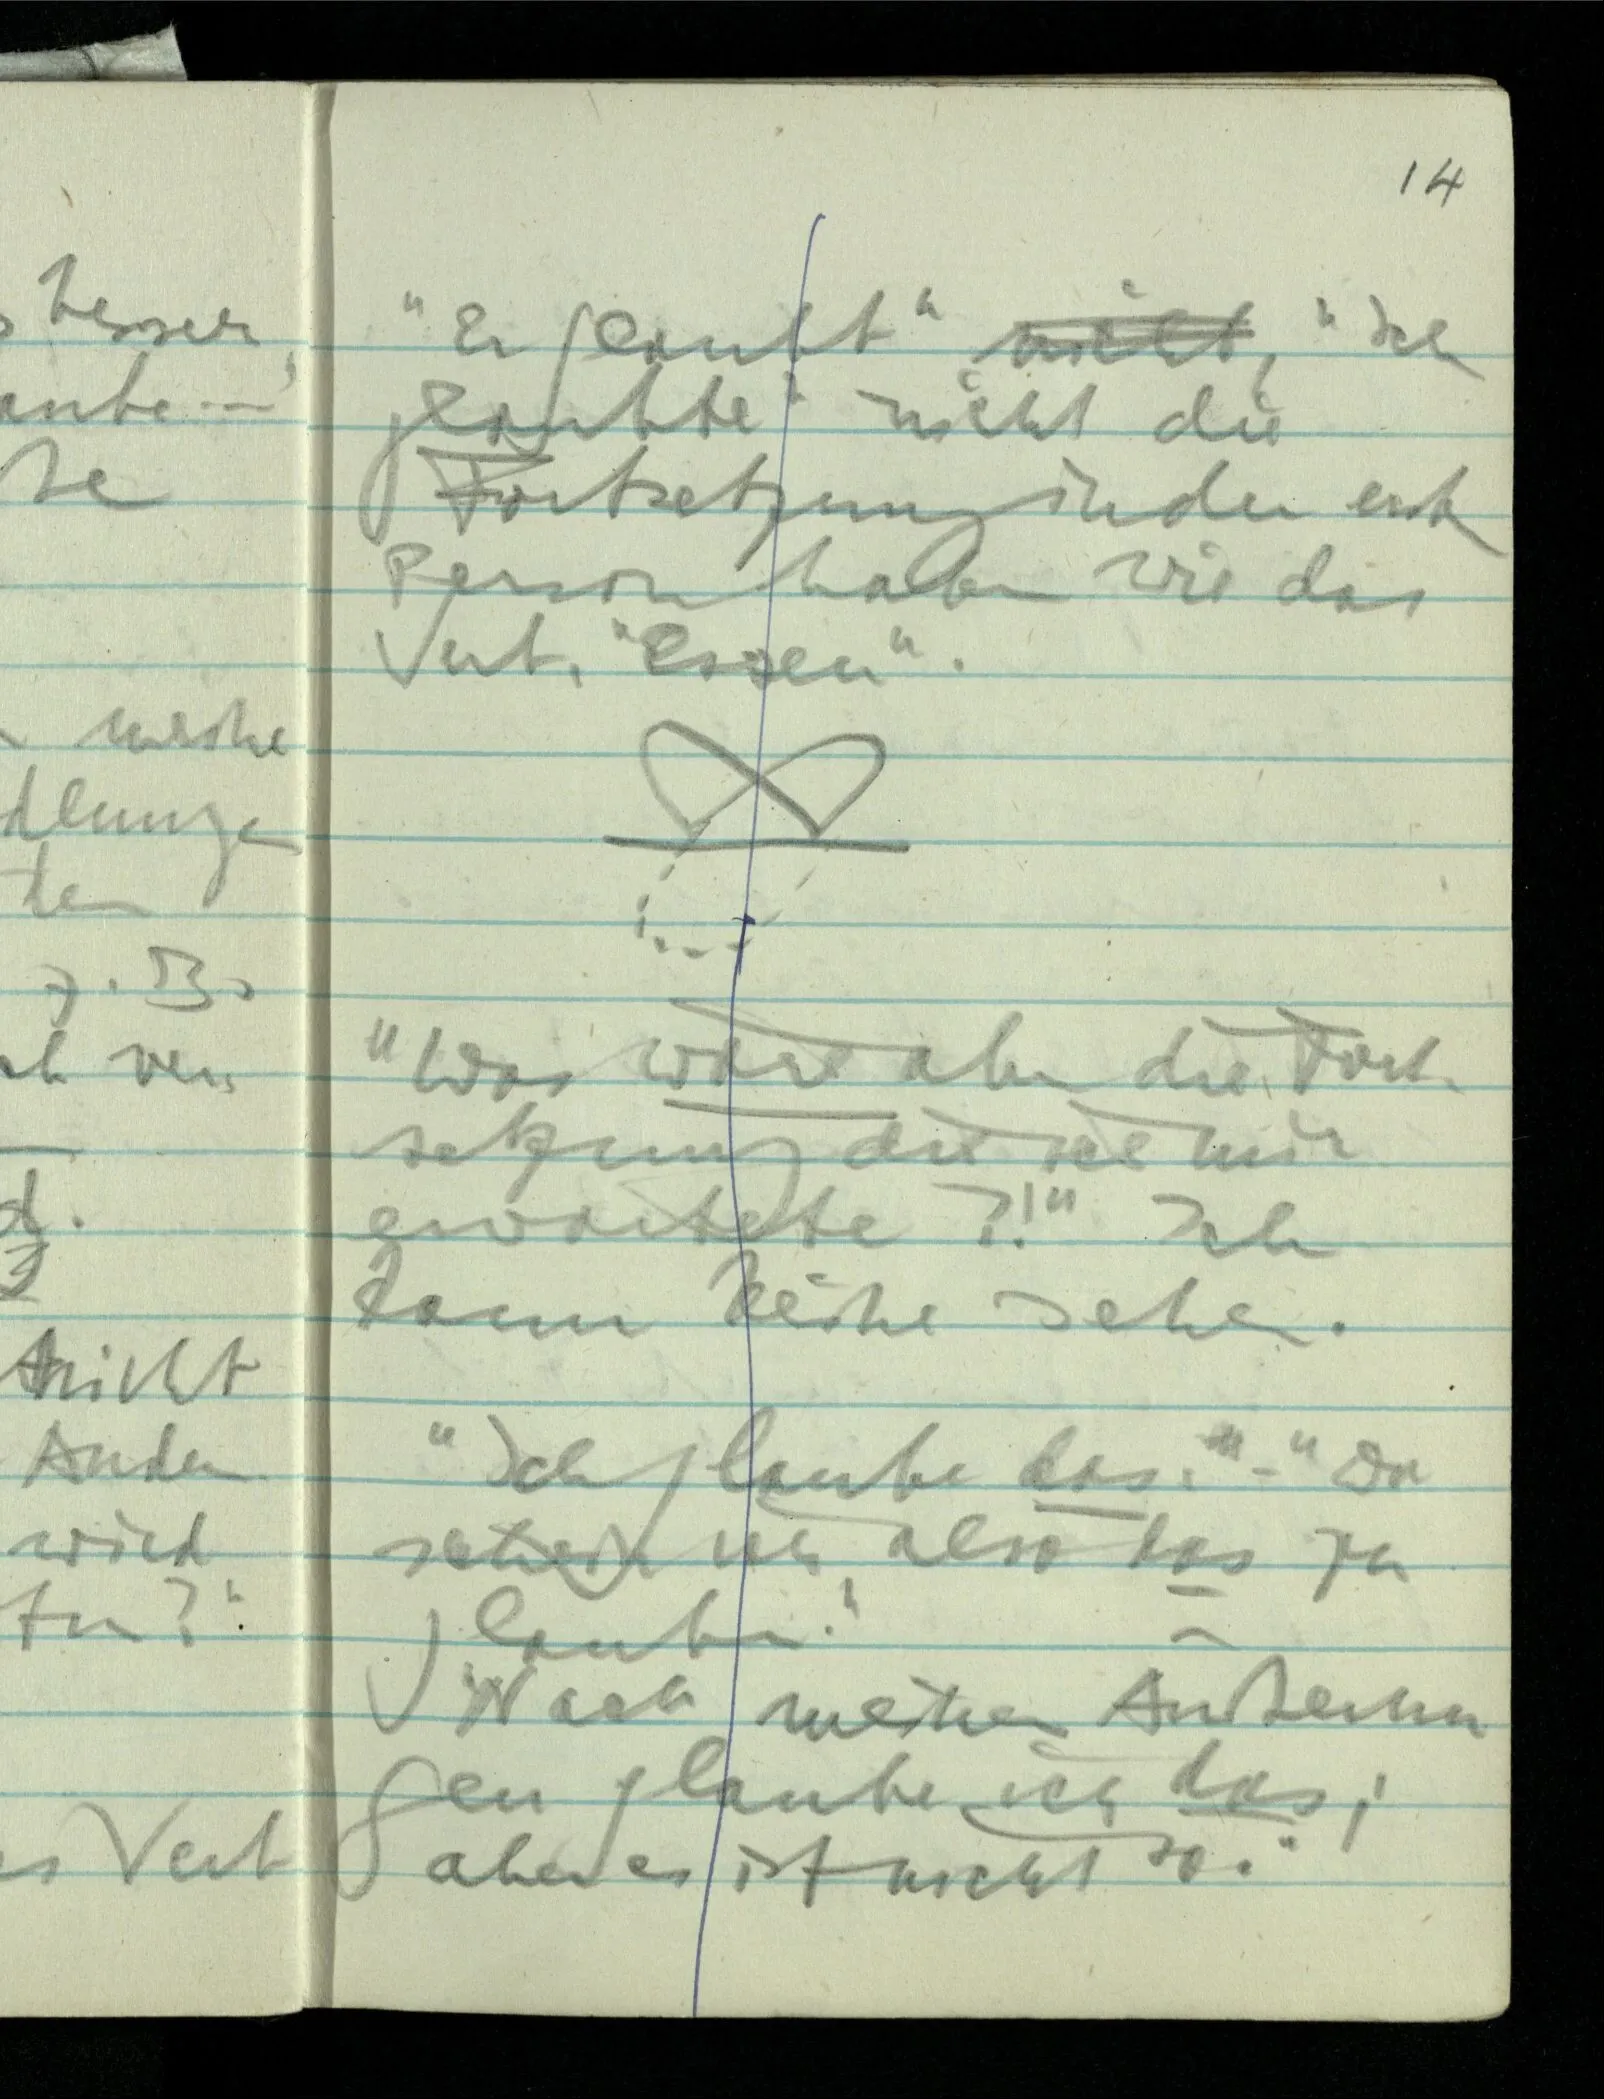 14
besser,
aube —
se
meine
dlunge
ten
z. B.
d.
3
nicht
Ander
wird
ten?".
es Verb
"Er glaubt" nicht, "Ich
glaubte" nicht die
Fortsetzung in der erst
Person haben wie das
Verb. "Essen".
"Was wäre aber die Fort-
setzung die ich mir
erwartete ?!" Ich
kann keine sehen.
"Ich glaube das." - "Da
scheine ich also das zu
glauben."
"Nach meinen Äußerun
gen glaube ich das;
aber es ist nicht so."